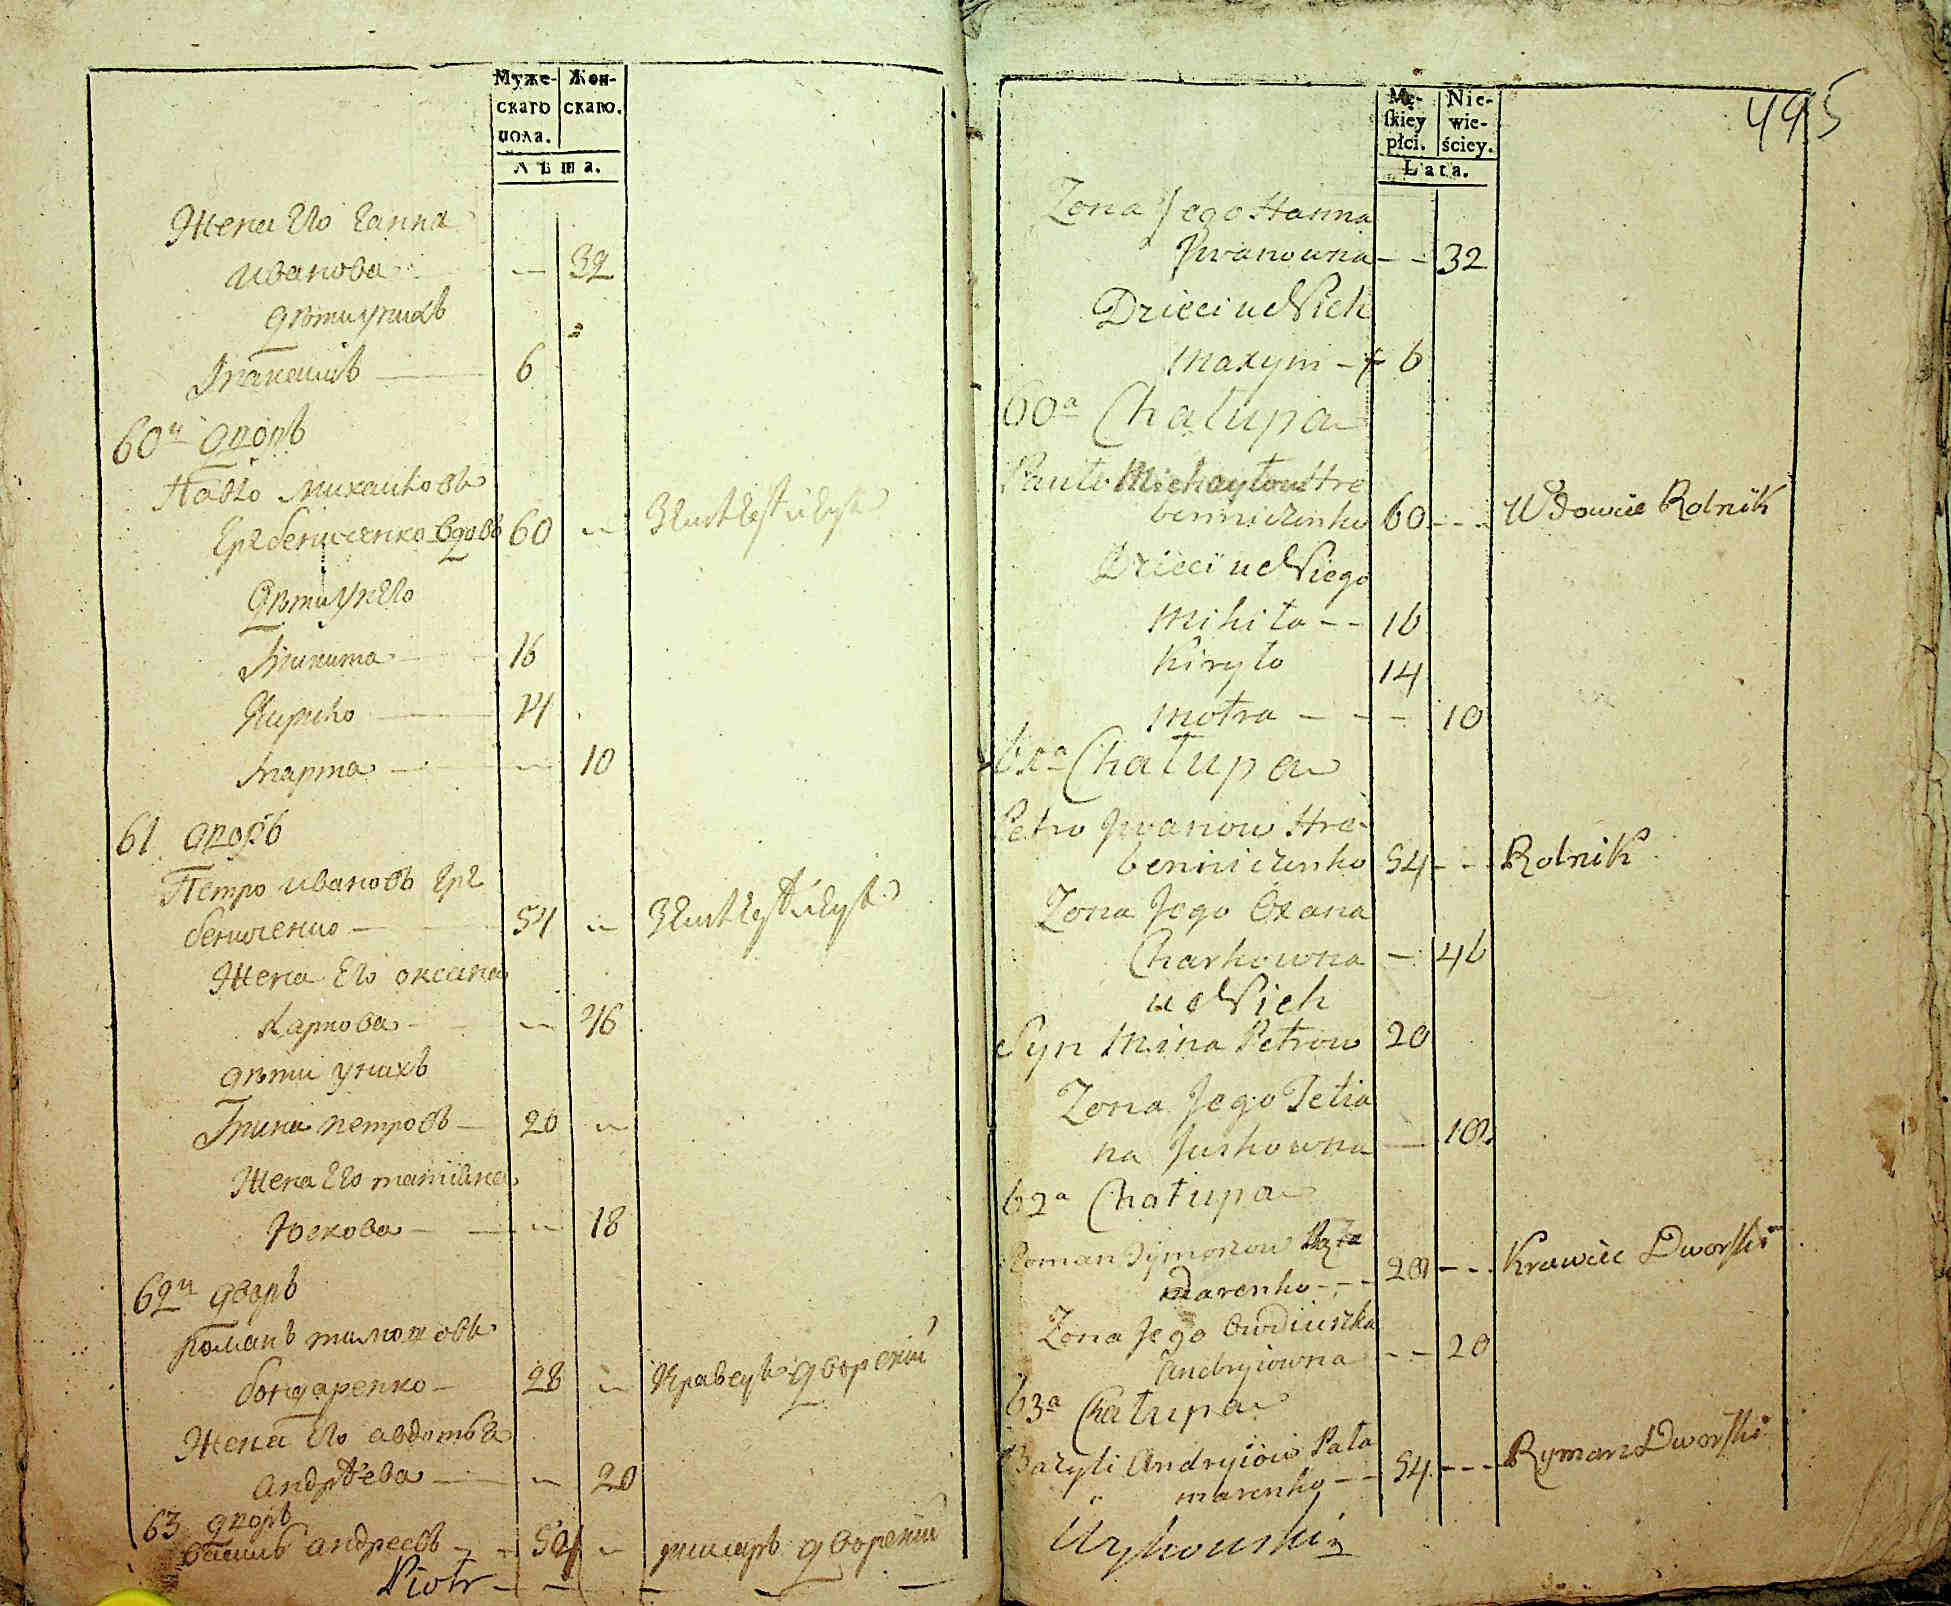 Муже- Жен-
скаго скаго.
пола.
Лѣта.
Жена Его Ганна
Иванова — 32
дѣти унихъ
Максимъ — 6
60й дворъ
Павло Михайловъ
Гребениченко вдовъ 60 —
дѣти унего
Микита — 16
Кирило — 14
Марта — — 10
61 дворъ
Петро Ивановъ Гре
бениченко — 54 —
Жена Его оксана
Карпова — — 46
дѣти унихъ
Мина Петровъ — 20 —
Жена Его татіяна
Юскова — — 18
62й дворъ
Романъ тимошовъ
бондаренко — 28 — Кравецъ дворский
Жена Его авдотья
Андрѣева — — 20
63 дворъ
Василь Андреевъ — 54 — римаръ дворский
Piotr
495
Mę- Nie-
skiey wie-
płci. ściey.
Lata.
Zona Jego Hanna
Jwanowna - - 32
Dzieci u Nich
Maxym - 6
60a Chałupa
Pawło Michayłow Hre
benniczenko 60 - - - Wdowiec Rolnik
Dzieci u Niego
Mikita - - 16
Kiryło 14
Motra - - - 10
61a Chałupa
Petro Jwanow Hre-
benniczenko 54 - - - Rolnik
Zona Jego Oxana
Charkowna - 46
u Nich
Syn Mina Petrow 20
Zona Jego Tetia
na Juskowna — 18
62a Chałupa
Roman Tymoszow
darenko - - - 28 - - - Krawiec Dworski
Zona Jego Owdiuszka
Andryiowna - - 20
63a Chałupa
Bazyli Andryiow Pała
marenko - - 54 - - - Rymarz Dworski